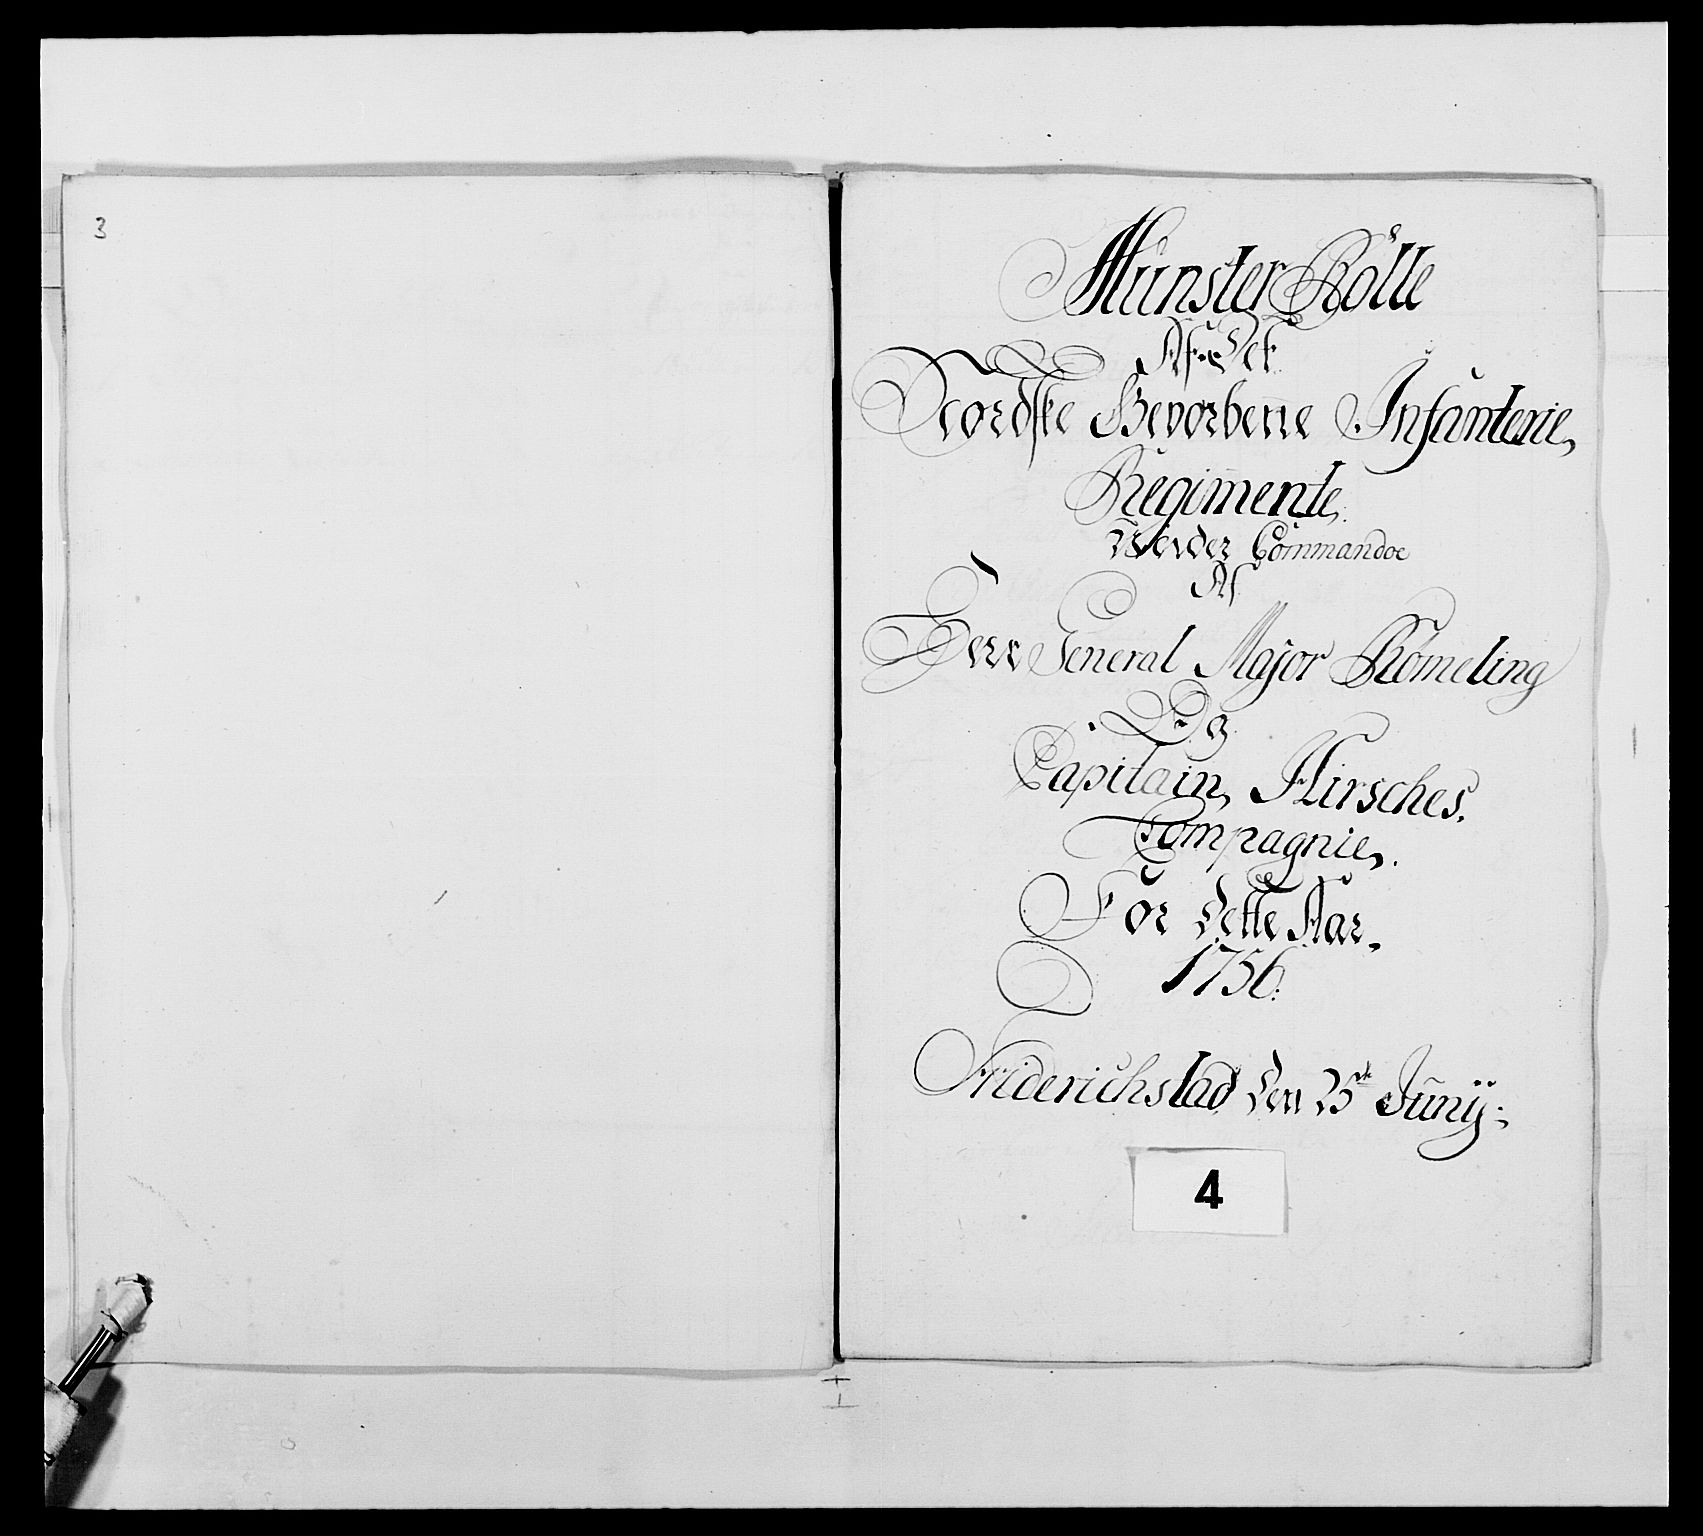 3
Münster Rolle
Af Det
Nordske Gevorbene Infanterie,
Regimente,
Under Commandoe
Af
Herr General Major Römeling
Og
Capitain, Hirsches,
Compagnie,.
For dette Aar,
1756:
Friderichstad den 25de Junij:
4